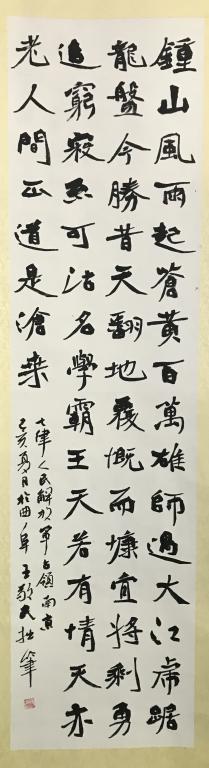 鍾山風雨起蒼黃百萬雄師過大江虎踞
龍盤今勝昔天翻地覆慨而慷宜將剩勇
追窮寇不可沽名學霸王天若有情天亦
老人間正道是滄桑
七律人民解放軍占領南京
己亥夏月於曲阜王敬夫拙筆